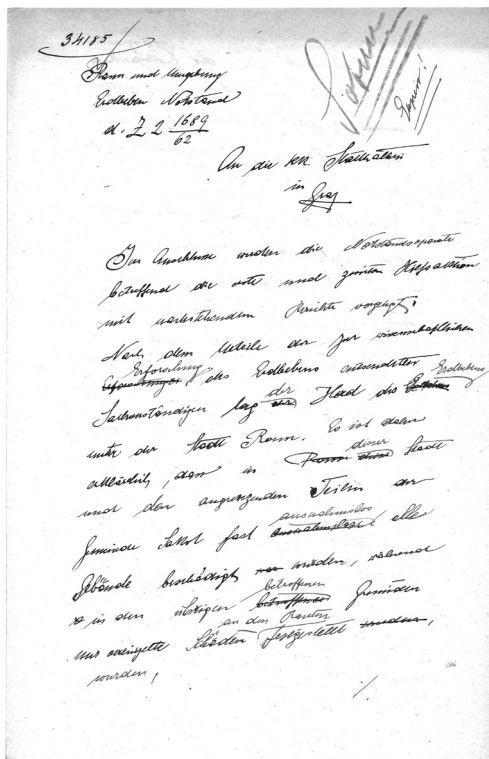 34185
Rann und Umgebung
Erdbeben Notstand
d. Z 2 1689/62
Sofort
Exp
An die kk. Statthalterei
in
Graz
Im Anschlusse werden die Notstandsoperate
betreffend die erste und zweite Hilfsaktion
mit nachstehendem Berichte vorgelegt.
Nach dem Urteile der zur wissenschaftlichen
Erforschung des Erdbebens entsendeten Erdbebens
Sachverständigen lag der Herd des
unter der Stadt Rann. Es ist daher
erklärlich, dass in dieser Stadt
und den angrenzenden Teilen der
Gemeinde Sakot fast ausnahmslos alle
Gebäude beschädigt wurden, während
in den übrigen betroffenen Gemeinden
nur vereinzelte Schäden an den Bauten festgestellt
wurden,